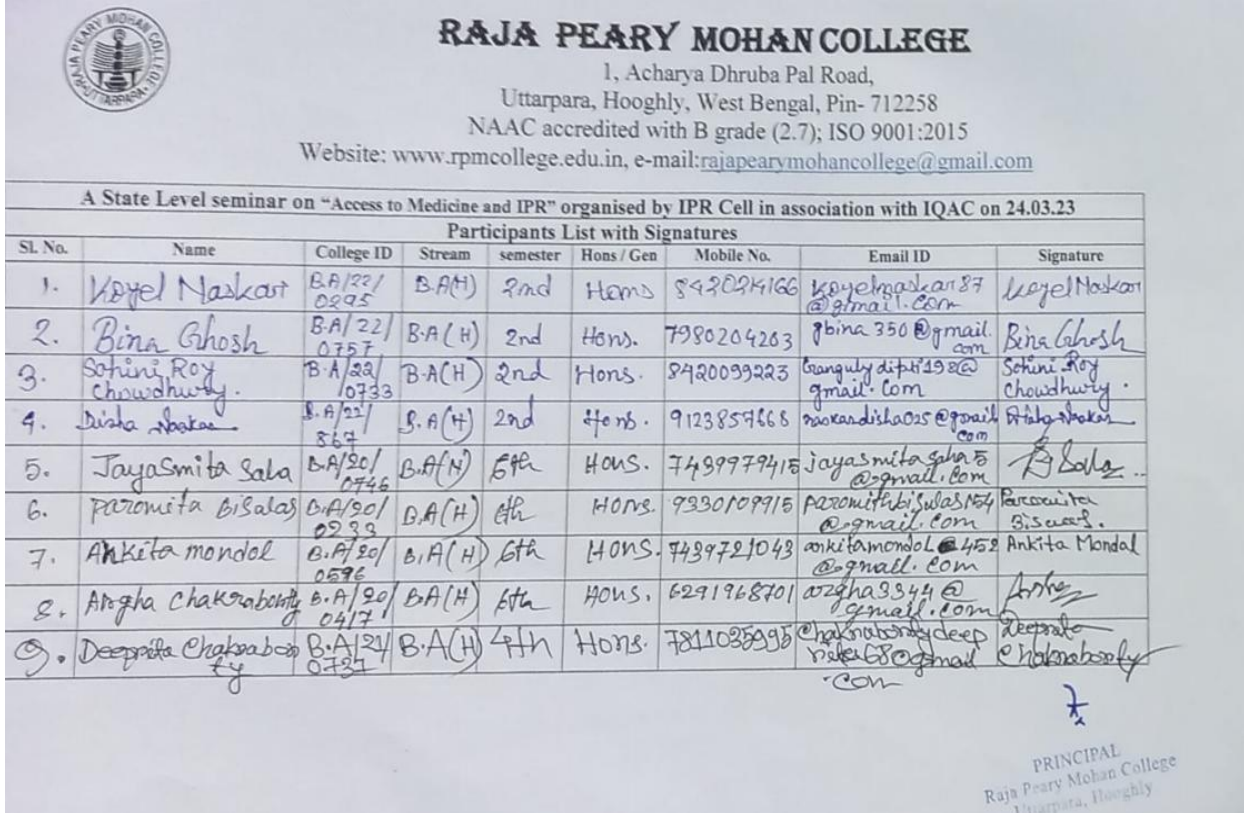 RAJA PEARY MOHAN COLLEGE
RAJA PEARY MOHAN COLLEGE
UTTARPARA
1, Acharya Dhruba Pal Road,
Uttarpara, Hooghly, West Bengal, Pin- 712258
NAAC accredited with B grade (2.7); ISO 9001:2015
Website: www.rpmcollege.edu.in, e-mail:rajapearymohancollege@gmail.com
A State Level seminar on “Access to Medicine and IPR” organised by IPR Cell in association with IQAC on 24.03.23
Participants List with Signatures
SL No. Name College ID Stream semester Hons / Gen Mobile No. Email ID Signature
1. Koyel Naskar B.A/22/ B.A(H) 2nd Hons koyelnaskar87 Koyel Naskar
0295 @gmail.com
2. Bina Ghosh B.A/22/ B.A(H) 2nd Hons. 7980204263 gbina350@gmail. Bina Ghosh
0757 com
3. Sohini Roy B.A/22/ B.A(H) 2nd Hons. 8420099223 Sohini Roy
Chowdhury. 0733 gmail.com Chowdhury.
4. Disha Naskar B.A/22/ B.A(H) 2nd Hons. 9123857668 naskardisha025@gmail Disha Naskar
867 com
5. Jayasmita Saha B.A/20/ B.A(H) 6th Hons. 7439979415 jayasmitasaha5
0746 @gmail.com
6. Paromita Biswas B.A/20/ B.A(H) 6th Hons. 9330109915 Paromita
0233 @gmail.com Biswas.
7. Ankita mondal B.A/20/ B.A(H) 6th Hons. 7439721043 Ankita Mondal
0596 @gmail.com
8. Argha Chakraborty B.A/20/ B.A(H) 6th Hons. 6291968701 argha3344@
0417 gmail.com
9. Deeprita Chakrabor B.A/21/ B.A(H) 4th Hons. 7811035995 Chakrabortydeep Deeprita
ty 0737 Chakraborty
.com
PRINCIPAL
Raja Peary Mohan College
Uttarpara, Hooghly